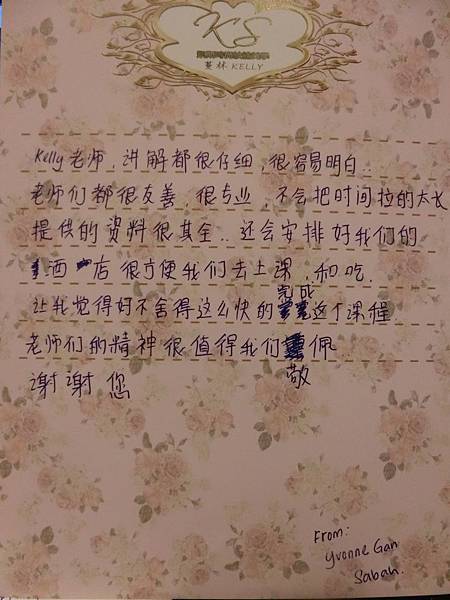 KS
葦林 KELLY
Kelly老师, 讲解都很仔细, 很容易明白..
老师们都很友善, 很专业, 不会把时间拉的太长
提供的资料很其全.. 还会安排好我们的
酒店很方便我们去上课, 和吃.
让我觉得好不舍得这么快的完成这个课程
老师们的精神很值得我们敬佩
谢谢您
From:
Yvonne Gan
Sabah.